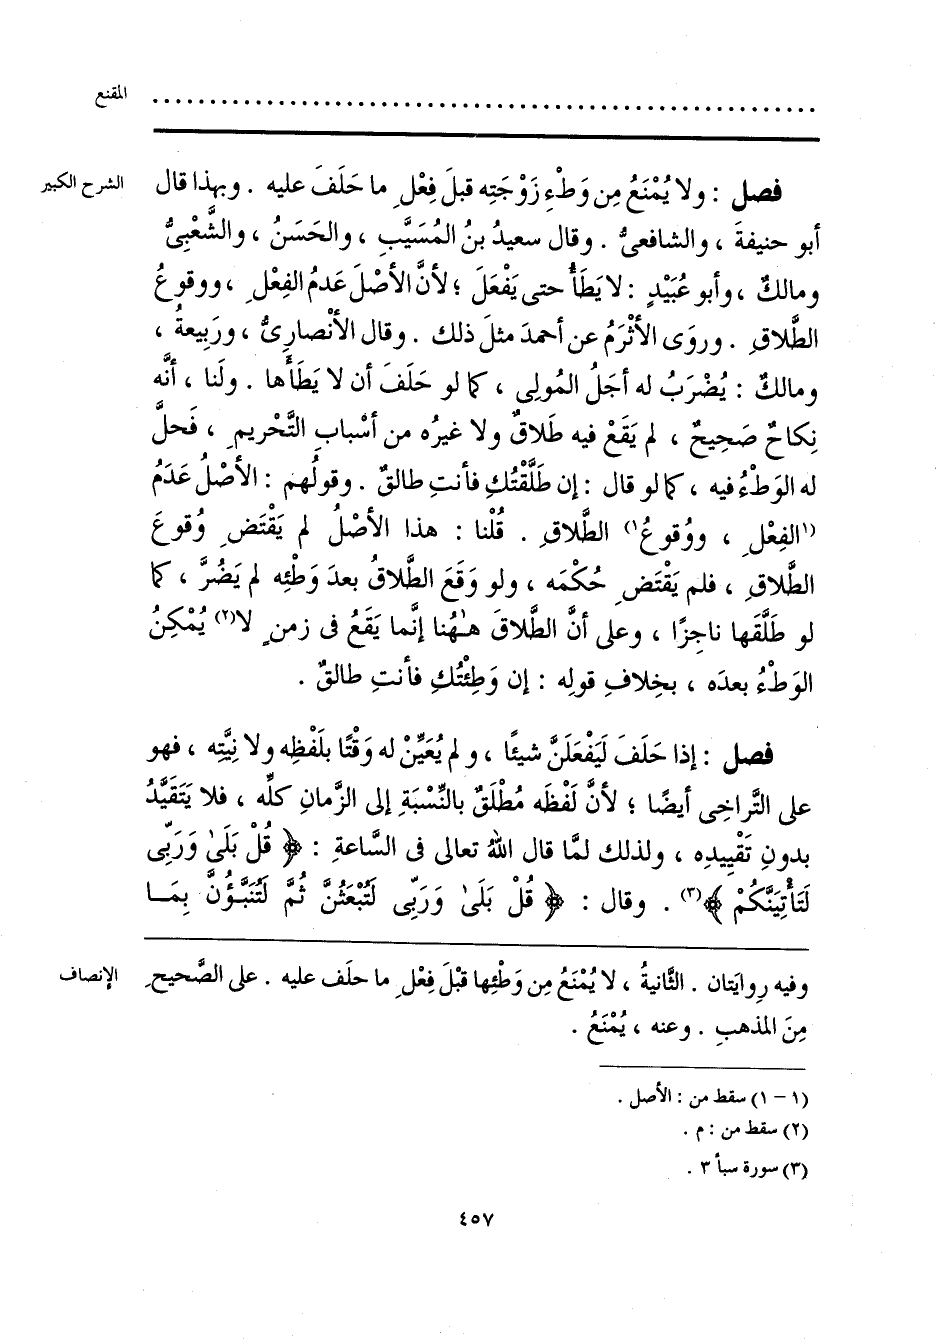 المقنع ........................................................
الشرح الكبير
فصل : ولا يُمْنَعُ مِن وَطْءِ زَوْجَتِه قبلَ فِعْلِ ما حَلَفَ عليه . وبهذا قال
أبو حنيفةَ ، والشافعىُّ . وقال سعيدُ بنُ المُسَيَّبِ ، والحَسَنُ ، والشَّعْبِىُّ
ومالكٌ ، وأبو عُبَيْدٍ : لا يَطَأُ حتى يَفْعَلَ ؛ لأنَّ الأصْلَ عَدمُ الفِعْلِ ، ووقوعُ
الطَّلاقِ . وروَى الأثْرَمُ عن أحمدَ مثلَ ذلك . وقال الأنْصارِىُّ ، ورَبِيعةُ ،
ومالكٌ : يُضْرَبُ له أجَلُ المُولِى ، كما لو حَلَفَ أن لا يَطَأَها . ولَنا ، أنَّه
نِكاحٌ صَحِيحٌ ، لم يَقَعْ فيه طَلاقٌ ولا غيرُه من أسْبابِ التَّحْريمِ ، فَحلَّ
له الوَطْءُ فيه ، كما لو قال : إن طَلَّقْتُكِ فأنتِ طالقٌ . وقولُهم : الأصْلُ عَدَمُ
(١الفِعْلِ ، ووُقوعُ١) الطَّلاقِ . قُلْنا : هذا الأصْلُ لم يَقْتَضِ وُقوعَ
الطَّلاقِ ، فلم يَقْتَضِ حُكْمَه ، ولو وَقَعَ الطَّلاقُ بعدَ وَطْئِه لم يَضُرَّ ، كما
لو طَلَّقَها ناجِزًا ، وعلى أنَّ الطَّلاقَ هـٰهُنا إنَّما يَقَعُ فى زمنٍ لا(٢) يُمْكِنُ
الوَطْءُ بعدَه ، بخِلافِ قولِه : إن وَطِئْتُكِ فأنتِ طالقٌ .
فصل : إذا حَلَفَ لَيَفْعَلَنَّ شيئًا ، ولم يُعَيِّنْ له وَقْتًا بلَفْظِه ولا نِيَّتِه ، فهو
على التَّراخِى أيضًا ؛ لأنَّ لَفْظَه مُطْلَقٌ بالنِّسْبَةِ إلى الزَّمانِ كلِّه ، فلا يَتَقَيَّدُ
بدونِ تَقْيِيدِه ، ولذلك لمَّا قال اللهُ تعالى فى السَّاعةِ : ﴿ قُلْ بَلَىٰ وَرَبِّى
لَتَأْتِيَنَّكُمْ ﴾(٣) . وقال : ﴿ قُلْ بَلَىٰ وَرَبِّى لَتُبْعَثُنَّ ثُمَّ لَتُنَبَّؤُنَّ بِمَا
الإنصاف
وفيه رِوايَتان . الثَّانيةُ ، لا يُمْنَعُ مِن وَطْئِها قبْلَ فِعْلِ ما حلَف عليه . على الصَّحيحِ
مِنَ المذهبِ . وعنه ، يُمْنَعُ .
(١ - ١) سقط من : الأصل .
(٢) سقط من : م .
(٣) سورة سبأ ٣ .
٤٥٧